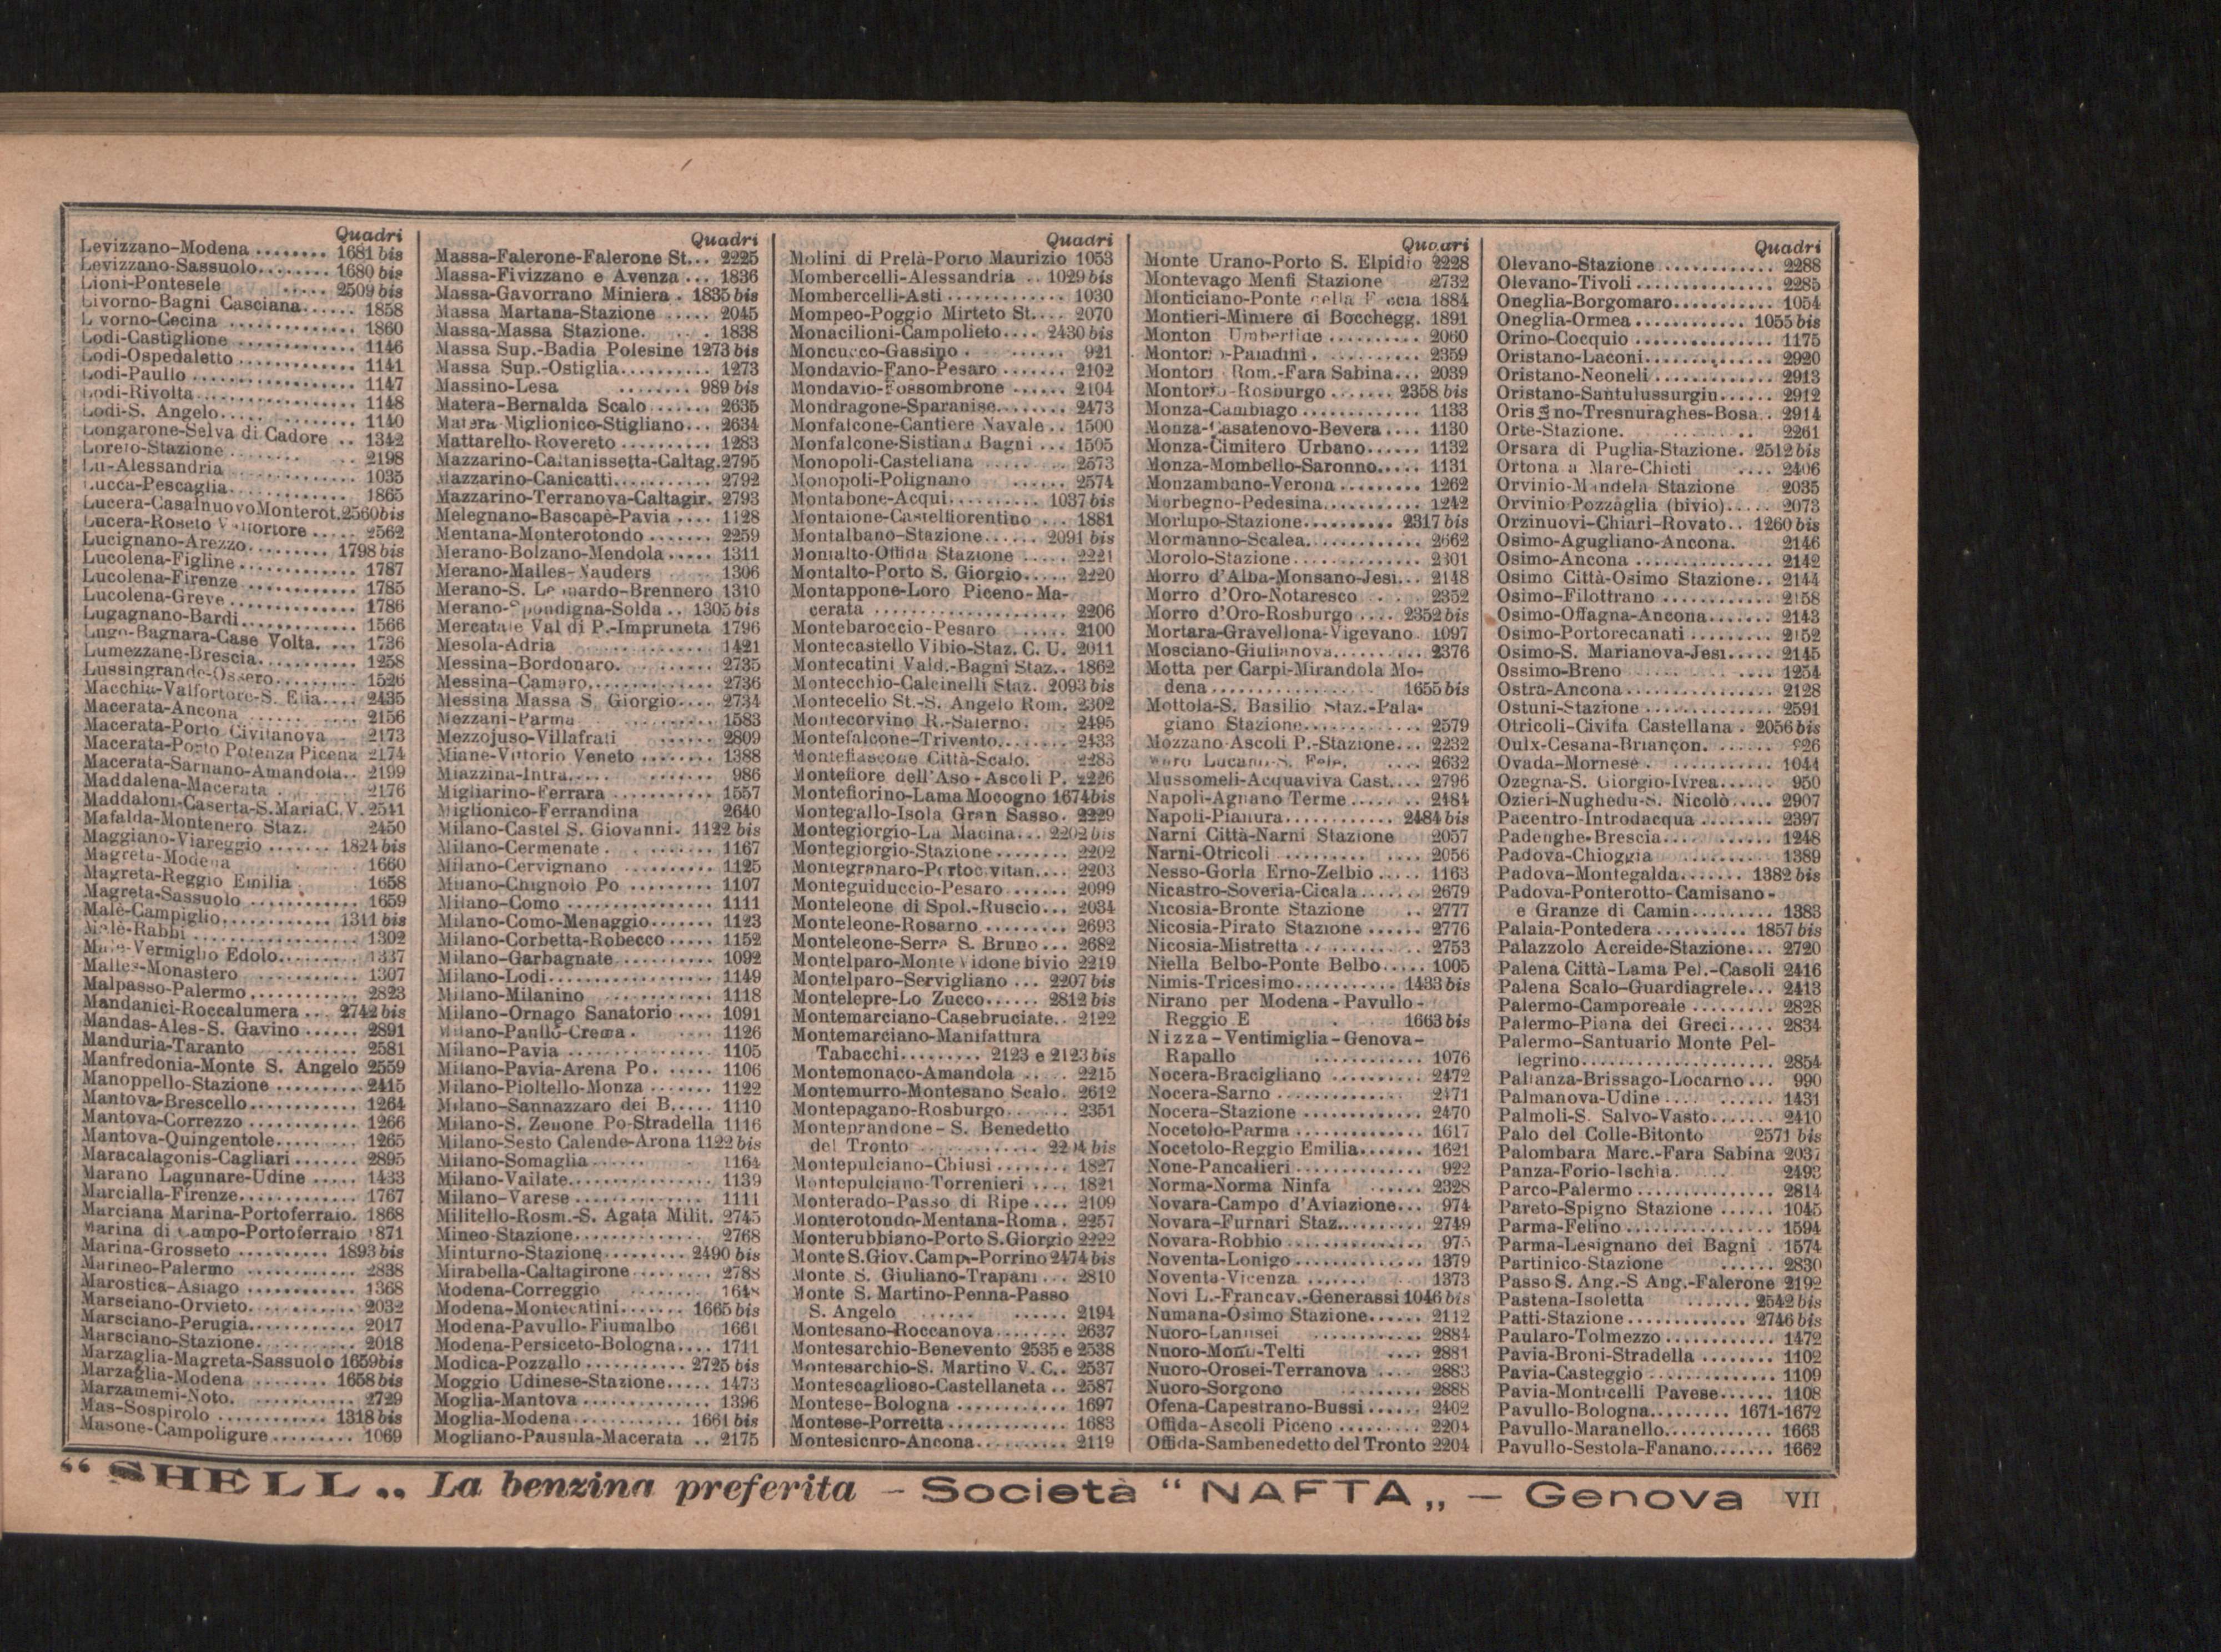 Quadri
Levizzano-Modena ........ 1681 bis
Levizzano-Sassuolo........ 1680 bis
Lioni-Pontesele ..... 2509 bis
Livorno-Bagni Casciana...... 1858
L vorno-Cecina ............. 1860
Lodi-Castiglione ............. 1146
Lodi-Ospedaletto ............. 1141
Lodi-Paullo ................. 1147
Lodi-Rivolta................. 1148
Lodi-S. Angelo............... 1140
Longarone-Selva di Cadore .. 1342
Loreto-Stazione ........ .. 2198
Lu-Alessandria ............. 1035
Lucca-Pescaglia............. 1865
Lucera-CasalnuovoMonterot.2560bis
Lucera-Roseto Valfortore ..... 2562
Lucignano-Arezzo......... 1798 bis
Lucolena-Figline............. 1787
Lucolena-Firenze ............ 1785
Lucolena-Greve.............. 1786
Lugagnano-Bardi............. 1566
Lugo-Bagnara-Case Volta. ... 1736
Lumezzane-Brescia........... 1258
Lussingrande-Ossero......... 1526
Macchia-Valfortore-S. Elia.... 2435
Macerata-Ancona ...... .... 2156
Macerata-Porto Civitanova . 2173
Macerata-Porto Potenza Picena 2174
Macerata-Sarnano-Amandola.. 2199
Maddalena-Macerata ........ 2176
Maddaloni-Caserta-S.MariaC.V.2541
Mafalda-Montenero Staz. 2450
Maggiano-Viareggio ....... 1824 bis
Magreta-Modena 1660
Magreta-Reggio Emilia 1658
Magreta-Sassuolo ............ 1659
Malè-Campiglio............ 1311 bis
Malè-Rabbi ................. 1302
Malè-Vermiglio Edolo......... 1337
Malles-Monastero ........... 1307
Malpasso-Palermo............ 2823
Mandanici-Roccalumera ... 2742 bis
Mandas-Ales-S. Gavino ...... 2891
Manduria-Taranto .......... 2581
Manfredonia-Monte S. Angelo 2559
Manoppello-Stazione ......... 2415
Mantova-Brescello............ 1264
Mantova-Correzzo ............ 1266
Mantova-Quingentole......... 1265
Maracalagonis-Cagliari ....... 2895
Marano Lagunare-Udine ..... 1433
Marcialla-Firenze............ 1767
Marciana Marina-Portoferraio. 1868
Marina di Campo-Portoferraio 1871
Marina-Grosseto .......... 1893 bis
Marineo-Palermo ............ 2838
Marostica-Asiago ........... 1368
Marsciano-Orvieto........... 2032
Marsciano-Perugia............ 2017
Marsciano-Stazione........... 2018
Marzaglia-Magreta-Sassuolo 1659bis
Marzaglia-Modena ........ 1658 bis
Marzamemi-Noto. ........... 2729
Mas-Sospirolo ............ 1318 bis
Masone-Campoligure......... 1069
Quadri
Massa-Falerone-Falerone St... 2225
Massa-Fivizzano e Avenza... 1836
Massa-Gavorrano Miniera . 1835 bis
Massa Martana-Stazione ..... 2045
Massa-Massa Stazione. . . 1838
Massa Sup.-Badia Polesine 1273 bis
Massa Sup.-Ostiglia.......... 1273
Massino-Lesa ........ 989 bis
Matera-Bernalda Scalo ....... 2635
Matera Miglionico-Stigliano... 2634
Mattarello Rovereto .......... 1283
Mazzarino-Caltanissetta-Caltag.2795
Mazzarino-Canicatti........... 2792
Mazzarino-Terranova-Caltagir. 2793
Melegnano-Bascapè-Pavia .... 1128
Mentana-Monterotondo ....... 2259
Merano-Bolzano-Mendola..... 1311
Merano-Malles-Nauders 1306
Merano-S. Leonardo-Brennero 1310
Merano-Spondigna-Solda .. 1305 bis
Mercatale Val di P.-Impruneta 1796
Mesola-Adria ........... 1421
Messina-Bordonaro. ...... 2735
Messina-Camaro.............. 2736
Messina Massa S. Giorgio.... 2734
Mezzani-Parma .......... 1583
Mezzojuso-Villafrati ...... 2809
Miane-Vittorio Veneto ........ 1388
Miazzina-Intra..... ....... 986
Migliarino-Ferrara ........... 1557
Miglionico-Ferrandina 2640
Milano-Castel S. Giovanni. 1122 bis
Milano-Cermenate . ....... 1167
Milano-Cervignano ......... 1125
Milano-Chignolo Po ......... 1107
Milano-Como ................ 1111
Milano-Como-Menaggio....... 1123
Milano-Corbetta-Robecco..... 1152
Milano-Garbagnate........... 1092
Milano-Lodi.................. 1149
Milano-Milanino ........... 1118
Milano-Ornago Sanatorio .... 1091
Milano-Paullo-Crema . .... 1126
Milano-Pavia ............... 1105
Milano-Pavia-Arena Po. ..... 1106
Milano-Pioltello-Monza ....... 1122
Milano-Sannazzaro dei B..... 1110
Milano-S. Zenone Po-Stradella 1116
Milano-Sesto Calende-Arona 1122 bis
Milano-Somaglia...... . 1164
Milano-Vailate............... 1139
Milano-Varese .............. 1111
Militello-Rosm.-S. Agata Milit. 2745
Mineo-Stazione.............. 2768
Minturno-Stazione......... 2490 bis
Mirabella-Caltagirone ........ 2788
Modena-Correggio ........ 1648
Modena-Montecatini....... 1665 bis
Modena-Pavullo-Fiumalbo 1661
Modena-Persiceto-Bologna.... 1711
Modica-Pozzallo ........... 2725 bis
Moggio Udinese-Stazione..... 1473
Moglia-Mantova .............. 1396
Moglia-Modena............ 1661 bis
Mogliano-Pausula-Macerata .. 2175
Quadri
Molini di Prelà-Porto Maurizio 1053
Mombercelli-Alessandria .. 1029 bis
Mombercelli-Asti ............ 1030
Mompeo-Poggio Mirteto St.... 2070
Monacilioni-Campolieto.... 2430 bis
Moncucco-Gassino . ...... 921
Mondavio-Fano-Pesaro ....... 2102
Mondavio-Fossombrone ...... 2104
Mondragone-Sparanise........ 2473
Monfalcone-Cantiere Navale.. 1500
Monfalcone-Sistiana Bagni ... 1505
Monopoli-Castellana ..... .. 2573
Monopoli-Polignano ...... 2574
Montabone-Acqui.......... 1037 bis
Montaione-Castelfiorentino ... 1881
Montalbano-Stazione...... 2091 bis
Montalto-Offida Stazione ..... 2221
Montalto-Porto S. Giorgio..... 2220
Montappone-Loro Piceno-Ma-
cerata .................... 2206
Montebaroccio-Pesaro ..... 2100
Montecastello Vibio-Staz. C. U. 2011
Montecatini Vald.-Bagni Staz.. 1862
Montecchio-Calcinelli Staz. 2093 bis
Montecelio St.-S. Angelo Rom. 2302
Montecorvino R.-Salerno. . 2495
Montefalcone-Trivento........ 2433
Montefiascone Città-Scalo. 2283
Montefiore dell'Aso-Ascoli P. 2226
Montefiorino-Lama Mocogno 1674bis
Montegallo-Isola Gran Sasso. 2229
Montegiorgio-La Macina... 2202 bis
Montegiorgio-Stazione........ 2202
Montegranaro-Portociv​itan.... 2203
Monteguiduccio-Pesaro ...... 2099
Monteleone di Spol.-Ruscio... 2034
Monteleone-Rosarno ......... 2693
Monteleone-Serra S. Bruno ... 2682
Montelparo-Monte Vidone bivio 2219
Montelparo-Servigliano ... 2207 bis
Montelepre-Lo Zucco...... 2812 bis
Montemarciano-Casebruciate.. 2122
Montemarciano-Manifattura
Tabacchi......... 2123 e 2123 bis
Montemonaco-Amandola ..... 2215
Montemurro-Montesano Scalo. 2612
Montepagano-Rosburgo....... 2351
Monteprandone-S. Benedetto
del Tronto ............ 2204 bis
Montepulciano-Chiusi ........ 1827
Montepulciano-Torrenieri .... 1821
Monterado-Passo di Ripe.... 2109
Monterotondo-Mentana-Roma. 2257
Monterubbiano-Porto S.Giorgio 2222
Monte S.Giov.Camp.-Porrino 2474 bis
Monte S. Giuliano-Trapani ... 2810
Monte S. Martino-Penna-Passo
S. Angelo ...... ...... 2194
Montesano-Roccanova........ 2637
Montesarchio-Benevento 2535 e 2538
Montesarchio-S. Martino V. C.. 2537
Montescaglioso-Castellaneta .. 2587
Montese-Bologna ............ 1697
Montese-Porretta............. 1683
Montesicuro-Ancona.......... 2119
Quadri
Monte Urano-Porto S. Elpidio 2228
Montevago Menfi Stazione 2732
Monticiano-Ponte 1884
Montieri-Miniere di Bocchegg. 1891
Monton Umbertide .......... 2060
Montorio-Paladini. .......... 2359
Montori Rom.-Fara Sabina... 2039
Montorio-Rosburgo ....... 2358 bis
Monza-Cambiago ............. 1133
Monza-Casatenovo-Bevera.... 1130
Monza-Cimitero Urbano...... 1132
Monza-Mombello-Saronno..... 1131
Monzambano-Verona ......... 1262
Morbegno-Pedesina........... 1242
Morlupo-Stazione.......... 2317 bis
Mormanno-Scalea............ 2662
Morolo-Stazione.............. 2301
Morro d'Alba-Monsano-Jesi... 2148
Morro d'Oro-Notaresco . . 2352
Morro d'Oro-Rosburgo .... 2352 bis
Mortara-Gravellona-Vigevano. 1097
Mosciano-Giulianova......... 2376
Motta per Carpi-Mirandola Mo-
dena................. 1655 bis
Mottola-S. Basilio Staz.-Pala-
giano Stazione............. 2579
Mozzano-Ascoli P.-Stazione... 2232
Muro Lucano-S. Fele. .... 2632
Mussomeli-Acquaviva Cast.... 2796
Napoli-Agnano Terme........ 2484
Napoli-Pianura............ 2484 bis
Narni Città-Narni Stazione 2057
Narni-Otricoli ......... .... 2056
Nesso-Gorla Erno-Zelbio..... 1163
Nicastro-Soveria-Cicala....... 2679
Nicosia-Bronte Stazione .. 2777
Nicosia-Pirato Stazione ...... 2776
Nicosia-Mistretta ............ 2753
Niella Belbo-Ponte Belbo..... 1005
Nimis-Tricesimo........... 1433 bis
Nirano per Modena-Pavullo-
Reggio E . 1663 bis
Nizza-Ventimiglia-Genova-
Rapallo ............ 1076
Nocera-Bracigliano .......... 2472
Nocera-Sarno .............. 2471
Nocera-Stazione ............. 2470
Nocetolo-Parma .............. 1617
Nocetolo-Reggio Emilia....... 1621
None-Pancalieri .............. 922
Norma-Norma Ninfa ...... 2328
Novara-Campo d'Aviazione... 974
Novara-Furnari Staz.......... 2749
Novara-Robbio ............... 975
Noventa-Lonigo............... 1379
Noventa-Vicenza ....... 1373
Novi L.-Francav.-Generassi 1046 bis
Numana-Osimo Stazione...... 2112
Nuoro-Lanusei ............ 2884
Nuoro-Monti-Telti .... 2881
Nuoro-Orosei-Terranova .... 2883
Nuoro-Sorgono ......... 2888
Ofena-Capestrano-Bussi ...... 2402
Offida-Ascoli Piceno ......... 2204
Offida-Sambenedetto del Tronto 2204
Quadri
Olevano-Stazione ............ 2288
Olevano-Tivoli ............... 2285
Oneglia-Borgomaro........... 1054
Oneglia-Ormea............ 1055 bis
Orino-Cocquio ............... 1175
Oristano-Laconi.............. 2920
Oristano-Neoneli ............. 2913
Oristano-Santulussurgiu...... 2912
Oristano-Tresnuraghes-Bosa.. 2914
Orte-Stazione. ........... 2261
Orsara di Puglia-Stazione. 2512 bis
Ortona a Mare-Chieti .... 2406
Orvinio-Mandela Stazione 2035
Orvinio-Pozzaglia (bivio)..... 2073
Orzinuovi-Chiari-Rovato.. 1260 bis
Osimo-Agugliano-Ancona. 2146
Osimo-Ancona ............... 2142
Osimo Città-Osimo Stazione.. 2144
Osimo-Filottrano ............ 2158
Osimo-Offagna-Ancona....... 2143
Osimo-Portorecanati ......... 2152
Osimo-S. Marianova-Jesi..... 2145
Ossimo-Breno ..... .... 1254
Ostra-Ancona................ 2128
Ostuni-Stazione .............. 2591
Otricoli-Civita Castellana . 2056 bis
Oulx-Cesana-Briançon. ...... 926
Ovada-Mornese . ........... 1044
Ozegna-S. Giorgio-Ivrea...... 950
Ozieri-Nughedu-S. Nicolò..... 2907
Pacentro-Introdacqua ........ 2397
Padenghe-Brescia.... ...... 1248
Padova-Chioggia .......... 1389
Padova-Montegalda....... 1382 bis
Padova-Ponterotto-Camisano-
e Granze di Camin......... 1383
Palaia-Pontedera .......... 1857 bis
Palazzolo Acreide-Stazione... 2720
Palena Città-Lama Pel.-Casoli 2416
Palena Scalo-Guardiagrele... 2413
Palermo-Camporeale ......... 2828
Palermo-Piana dei Greci..... 2834
Palermo-Santuario Monte Pel-
legrino..................... 2854
Pallanza-Brissago-Locarno ... 990
Palmanova-Udine .... ...... 1431
Palmoli-S. Salvo-Vasto....... 2410
Palo del Colle-Bitonto 2571 bis
Palombara Marc.-Fara Sabina 2037
Panza-Forio-Ischia. . . 2493
Parco-Palermo............... 2814
Pareto-Spigno Stazione ...... 1045
Parma-Felino ................ 1594
Parma-Lesignano dei Bagni . 1574
Partinico-Stazione ...... 2830
Passo S. Ang.-S Ang.-Falerone 2192
Pastena-Isoletta ....... 2542 bis
Patti-Stazione ............. 2746 bis
Paularo-Tolmezzo............ 1472
Pavia-Broni-Stradella ........ 1102
Pavia-Casteggio ............. 1109
Pavia-Monticelli Pavese...... 1108
Pavullo-Bologna......... 1671-1672
Pavullo-Maranello............ 1663
Pavullo-Sestola-Fanano....... 1662
“SHELL„ La benzina preferita - Società “NAFTA„ - Genova VII